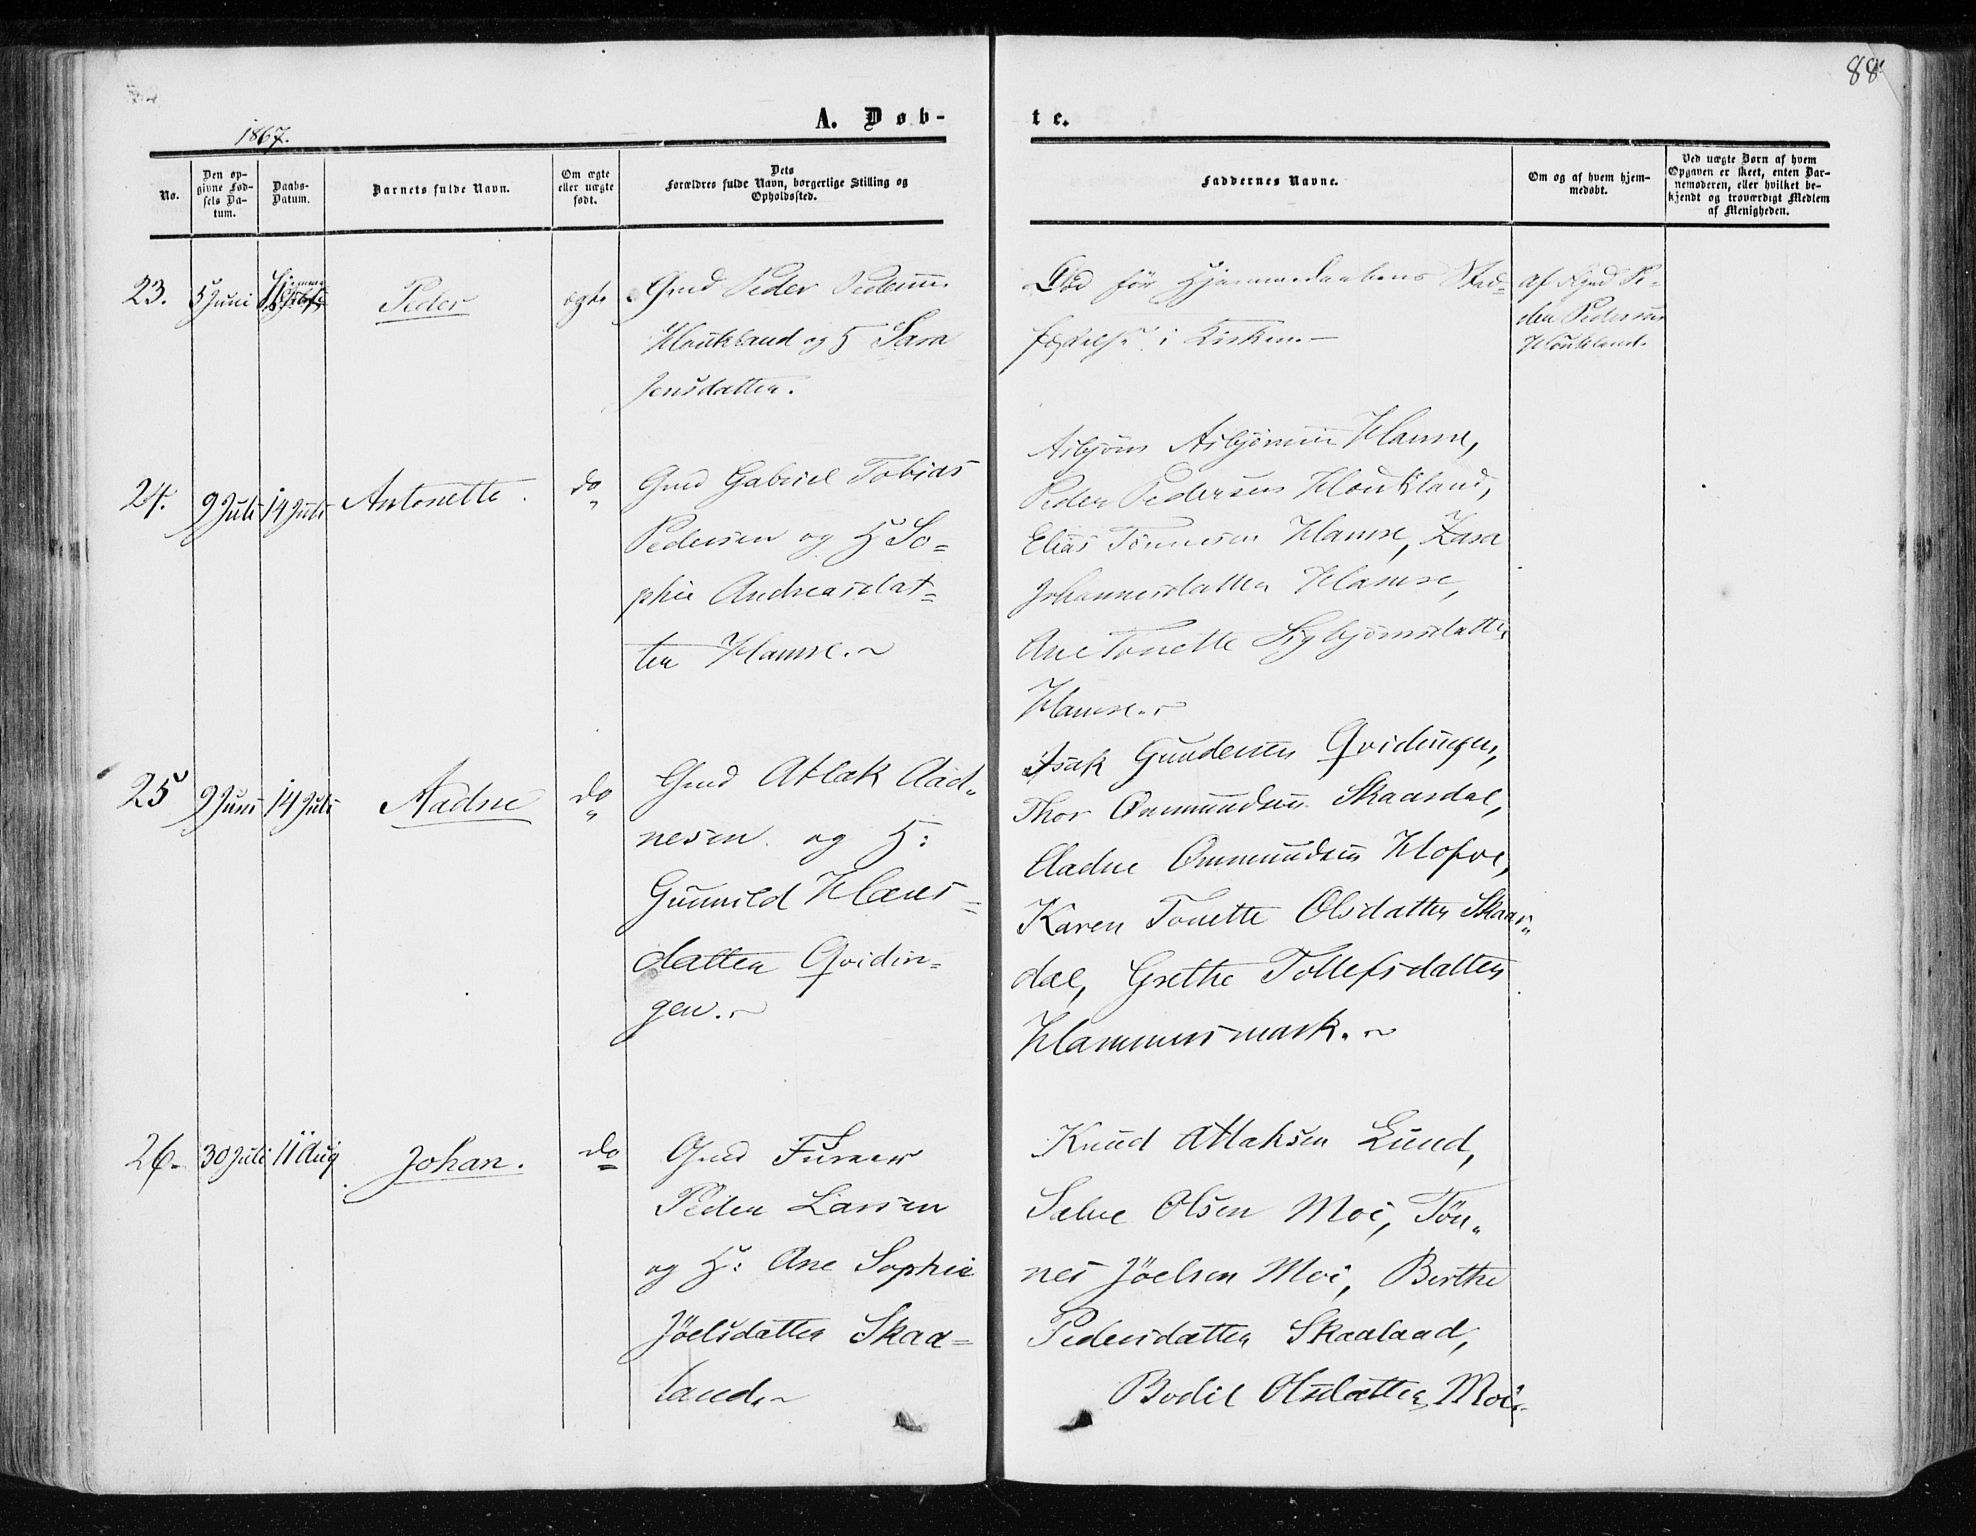 88
A. Døb-
te.
1867.
No.
Den op-
givne Fød-
sels Da-
tum.
Daabs-
Datum.
Barnets fulde Navn.
Om ægte
eller uægte
født.
Dets
Forældres fulde Navn, borgerlige Stilling og
Opholdssted.
Faddernes Navne.
Om og af hvem hjem-
medøbt.
Ved uægte Børn af hvem
Opgaven er skeet, enten Bar-
nemoderen, eller hvilket be-
kjendt og troværdigt Medlem
af Menigheden.
23.
5 Juni
Peder
ægte
Gmd Peder Pedersen
Houkland og H Sara
Jensdatter.
Død før Hjemmedaabens Stad-
fæstelse i Kirken.-
af Gmd Pe-
der Pedersen
Houkland.
24.
9 Juli
14 Juli
Antonette.
do
Gmd Gabriel Tobias
Pedersen og H So-
phie Andreasdat-
ter Hamre.
Asbjørn Asbjørnsen Hamre,
Peder Pedersen Houkland,
Elias Tønnesen Hamre, Zara
Johannesdatter Hamre,
Ane Tonette Sigbjørnsdatter
Hamre.
25
9 Juni
14 Juli
Aadne
do
Gmd Atlak Aad-
nesen og H:
Gunnild Hans-
datter Qvidin-
gen.
Isak Gundersen Qvidingen,
Thor Ommundsen Skaardal,
Aadne Ommundsen Hofve,
Karen Tonette Olsdatter Skaar-
dal, Grethe Tollefsdatter
Hammersmark.
26.
30 Juli
11 Aug
Johan.
do
Gmd
Peder Larsen
og H: Ane Sophie
Jöelsdatter Skaa-
land.
Knud Atlaksen Lund,
Salve Olsen Moi, Tøn-
nes Jöelsen Moi, Berthe
Pedersdatter Skaaland,
Bodil Olsdatter Moi.